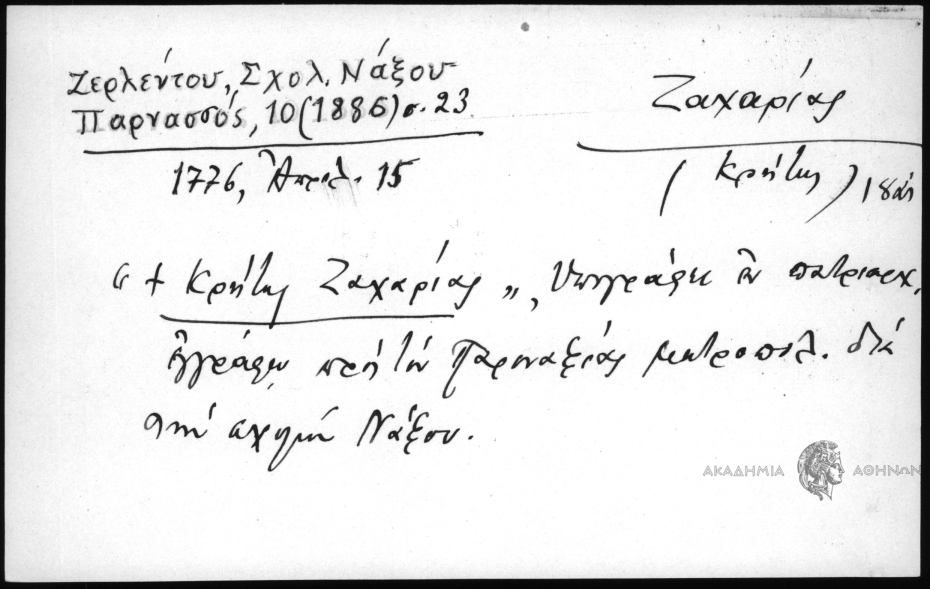 Ζερλέντου, Σχολ. Νάξου
Παρνασσός, 10 (1886) σ. 23
1776, Ἀπριλ. 15
Ζαχαρίας
(Κρήτης) 18 αἰ
"+ Κρήτης Ζαχαρίας", Ὑπογράφει ἐν πατριαρχ.
ἐγγράφῳ πρὸς τὸν Παροναξίας μητροπολ. διὰ
τὴν σχολὴν Νάξου.
ΑΚΑΔΗΜΙΑ ΑΘΗΝΩΝ